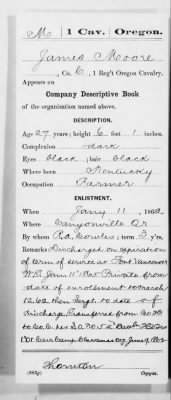 M | 1 Cav. | Oregon.
James Moore
, Co. C, 1 Reg't Oregon Cavalry.
Appears on
Company Descriptive Book
of the organization named above.
DESCRIPTION.
Age 27 years; height 6 feet 1 inches.
Complexion dark
Eyes Black; hair black
Where born Kentucky
Occupation Farmer
ENLISTMENT.
When Jany 11, 1862
Where Canyonville Or
By whom R.A. Cowles; term 3 y'rs.
Remarks: Discharged on expiration
of term of service at Fort Vancouver
W.T. Private from
date of enrolment to March
12, 62 then Sergt. to date of
discharge. Transferred from Co.
to Co. C. per S.O. No. 5
1" Or. Cav. Camp Clackamas Ogn
Thornton
Copyist.